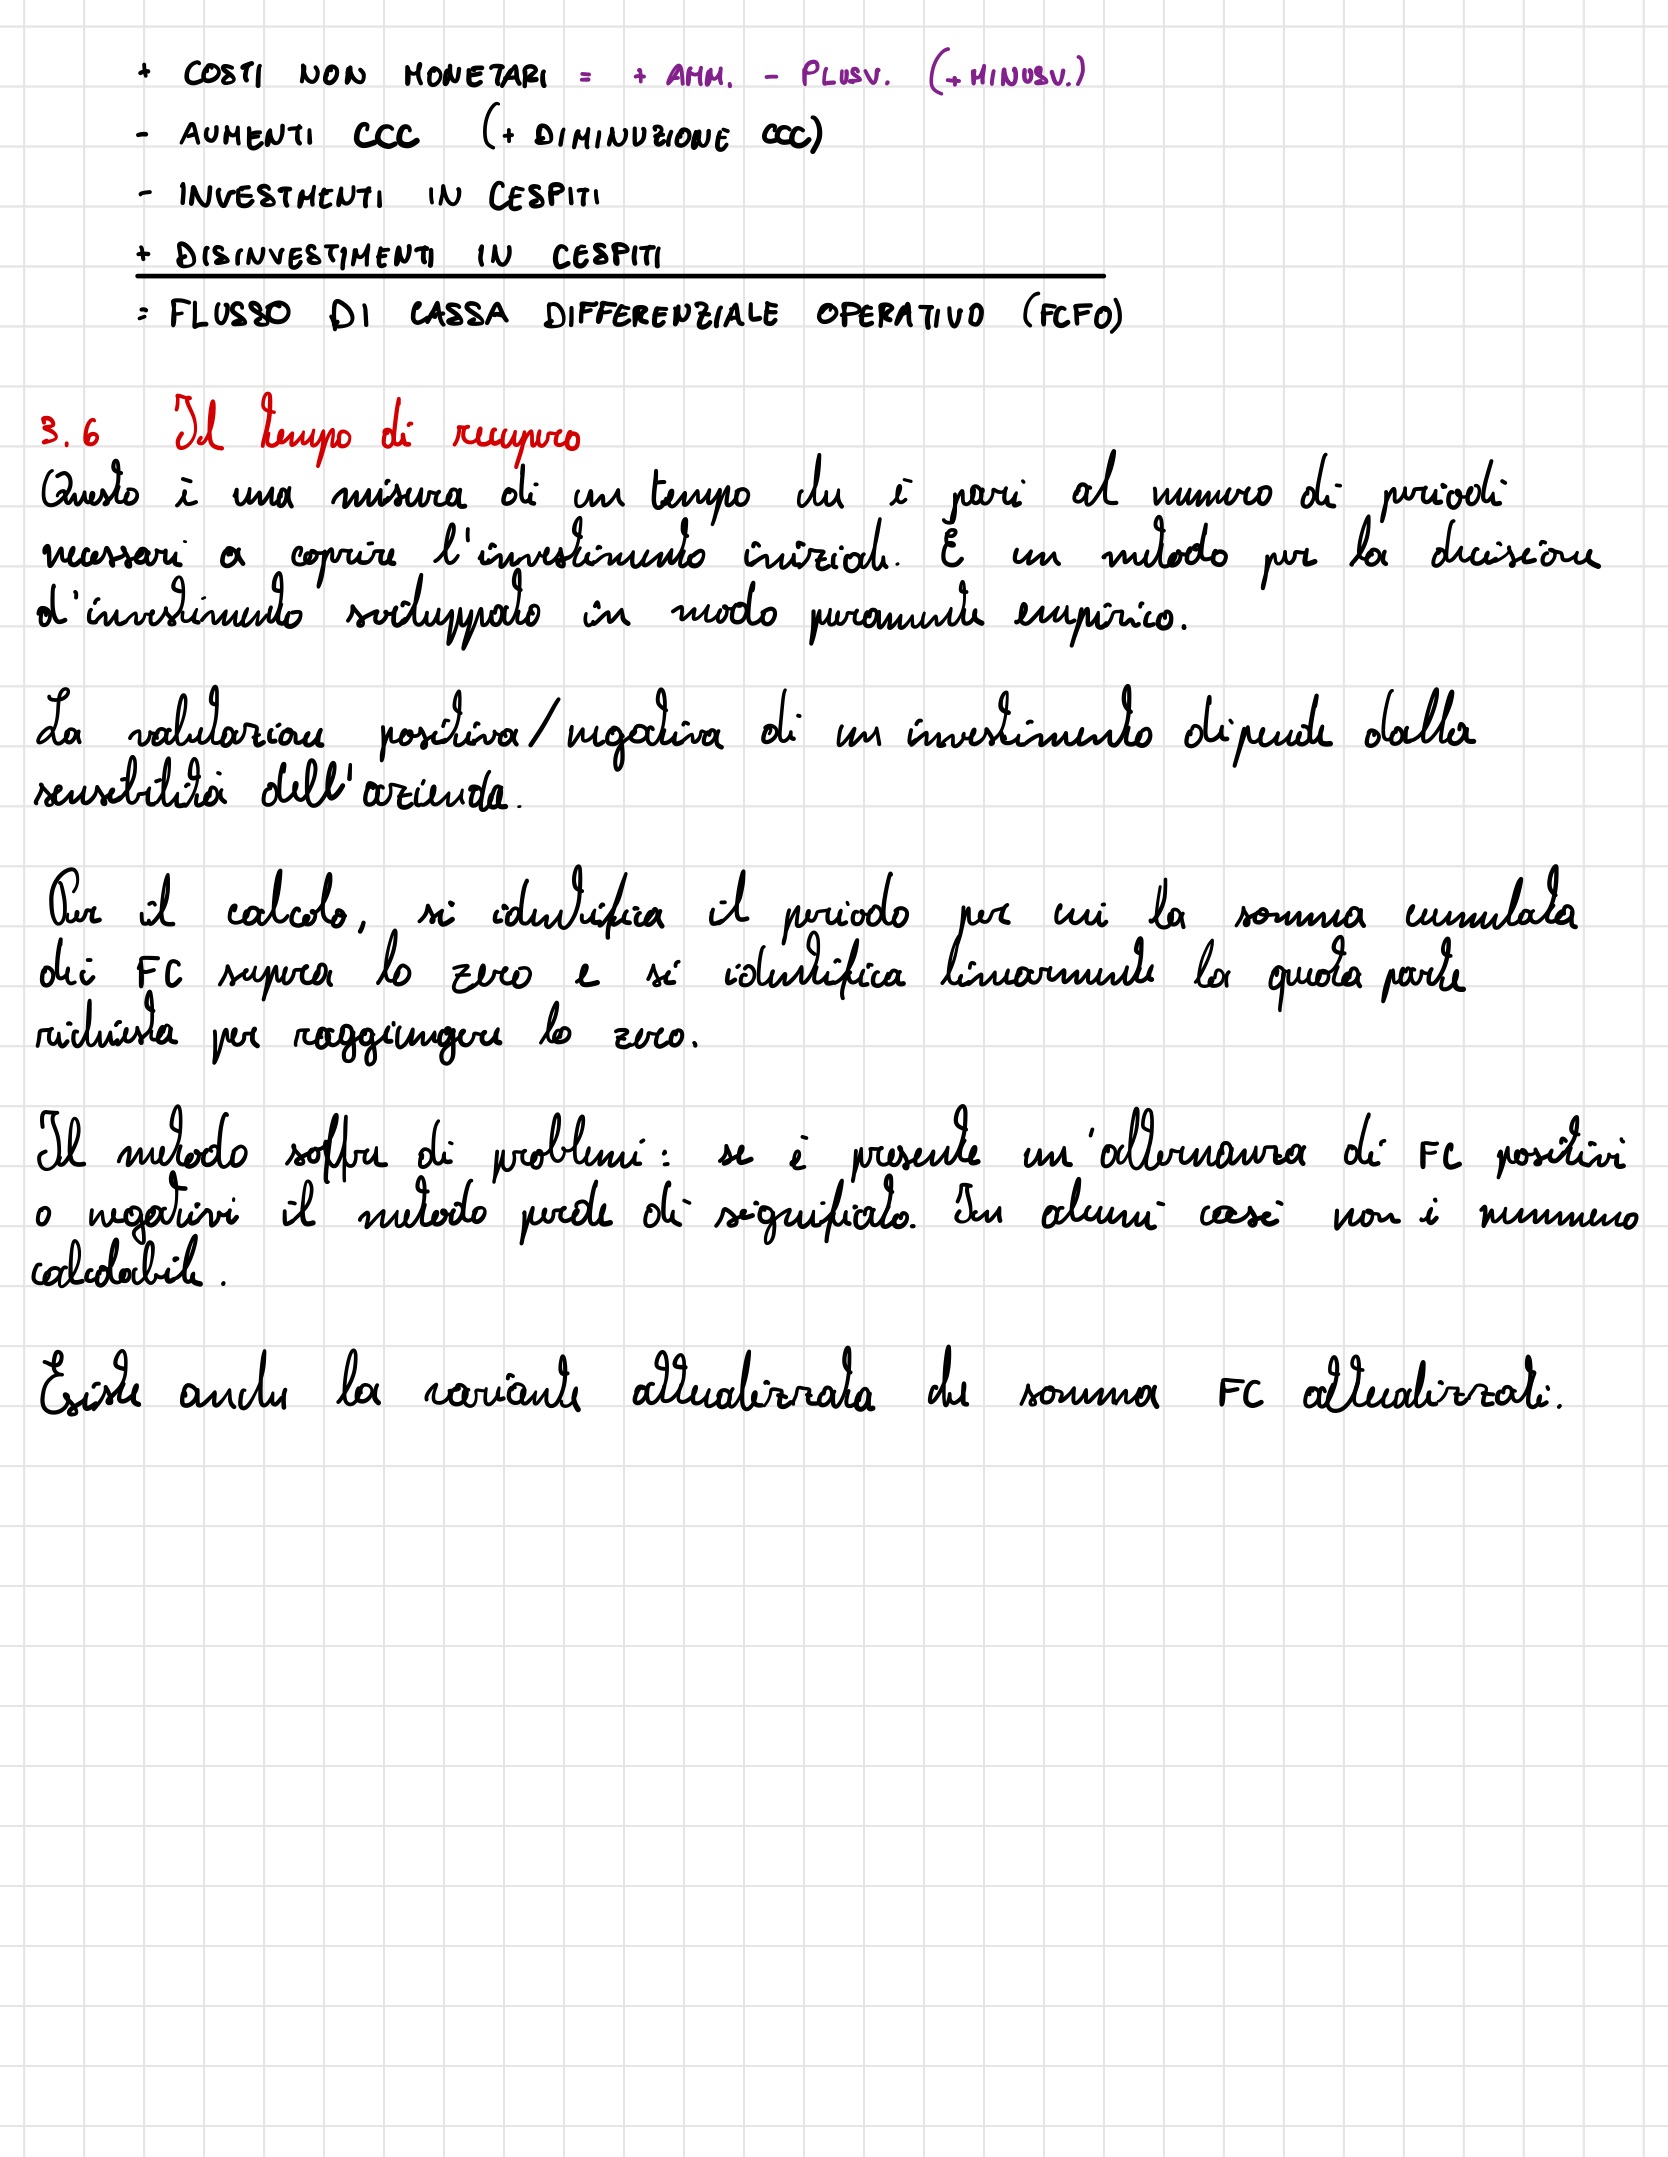 + COSTI NON MONETARI = + AMM. - PLUSV. (+ MINUSV.)
- AUMENTI CCC (+ DIMINUZIONE CCC)
- INVESTMENTI IN CESPITI
+ DISINVESTIMENTI IN CESPITI
= FLUSSO DI CASSA DIFFERENZIALE OPERATIVO (FCFO)
3.6 Il tempo di recupero
Questo è una misura di un tempo che è pari al numero di periodi
necessari a coprire l'investimento iniziale. È un metodo per la decisione
d'investimento sviluppato in modo puramente empirico.
La valutazione positiva/negativa di un investimento dipende dalla
sensibilità dell'azienda.
Per il calcolo, si identifica il periodo per cui la somma cumulata
dei FC supera lo zero e si identifica linearmente la quota parte
richiesta per raggiungere lo zero.
Il metodo soffre di problemi: se è presente un'alternanza di FC positivi
o negativi il metodo perde di significato. In alcuni casi non è nemmeno
calcolabile.
Esiste anche la variante attualizzata che somma FC attualizzati.